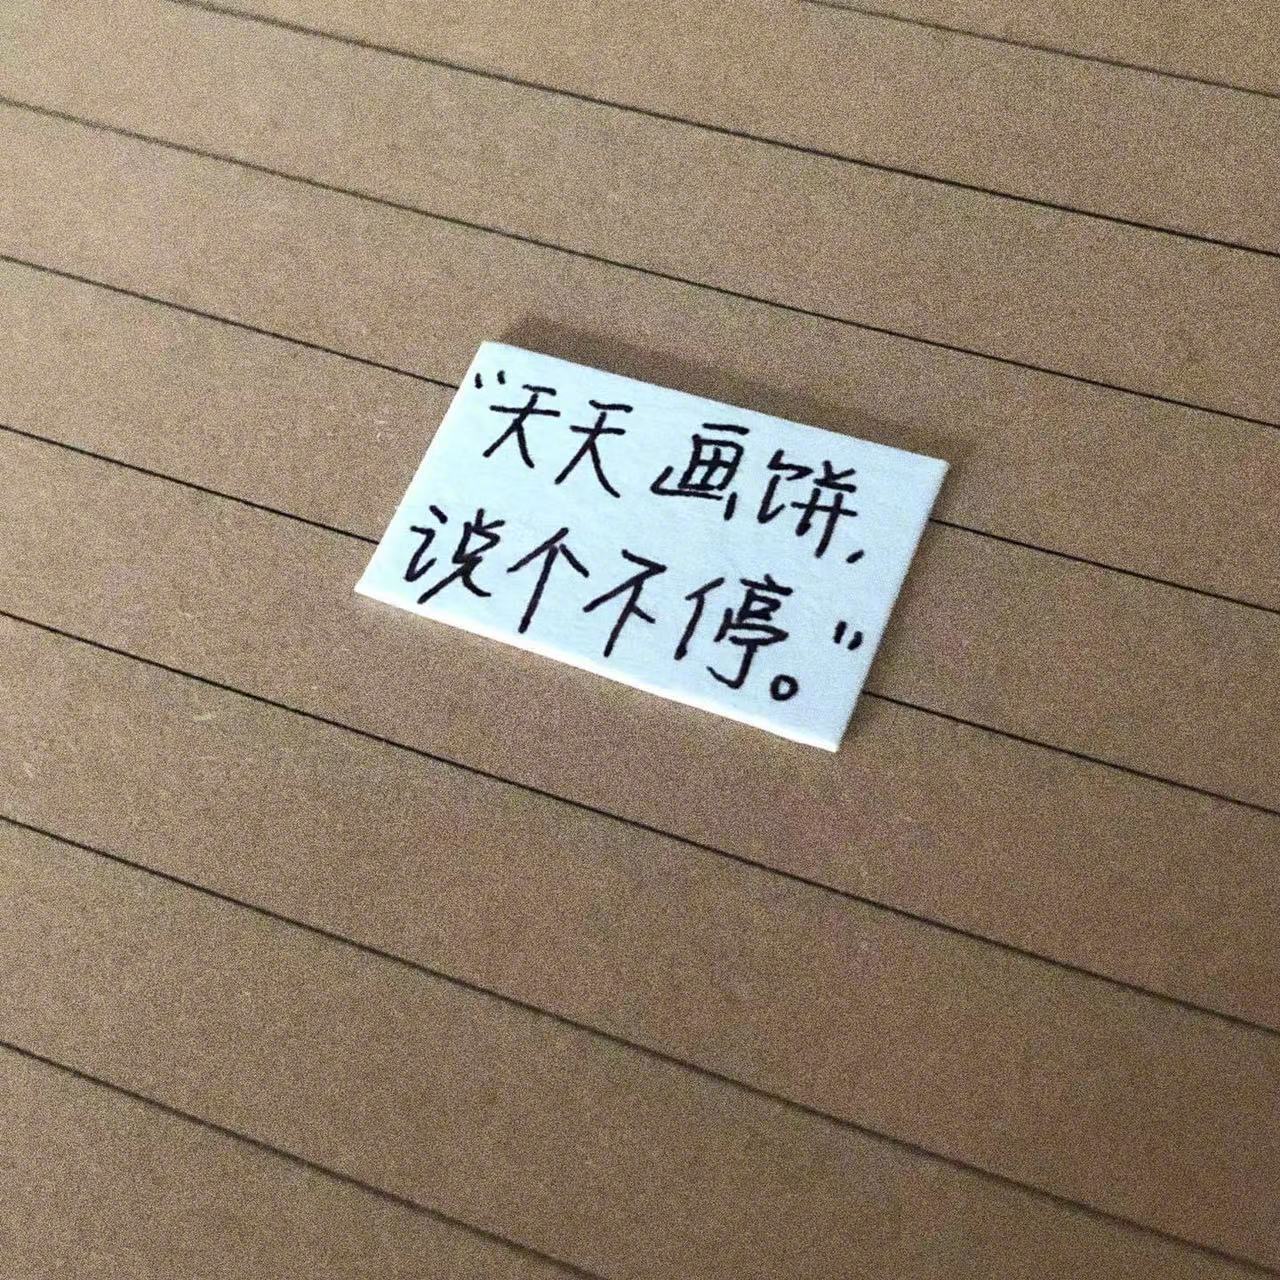 “天天画饼,
说个不停。”